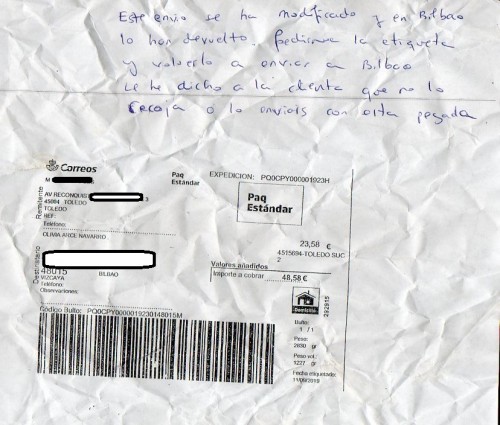 Este envio se ha modificado y en Bilbao
lo han devuelto. Pedirme la etiqueta
y volverlo a enviar a Bilbao
Le he dicho a la clienta que no lo
recoja o lo enviois con esta pegada
Correos
Paq
Estándar
EXPEDICION: PQ0CPY000001923H
Remitente
M
AV RECONQUIS 3
45004 TOLEDO
TOLEDO
REF:
Teléfono:
Paq
Estándar
OLIVIA ARCE NAVARRO
23,58 €
4515694-TOLEDO SUC
2
Destinatario
48015 BILBAO
VIZCAYA
Teléfono:
Observaciones:
Valores añadidos
Importe a cobrar 48,58 €
Domicilio
292915
Código Bulto: PQ0CPY0000019230148015M
Bulto:
1 / 1
Peso:
2890 gr
Peso vol.:
1227 gr
Fecha etiquetado:
11/09/2019